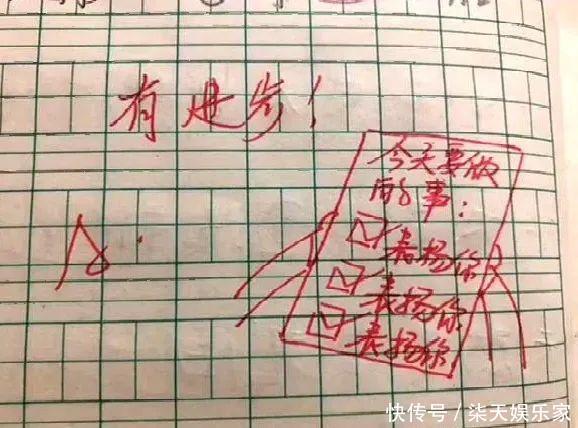 有进步！
今天要做
的事：
表扬你
表扬你
表扬你
A
快传号／柒天娱乐家